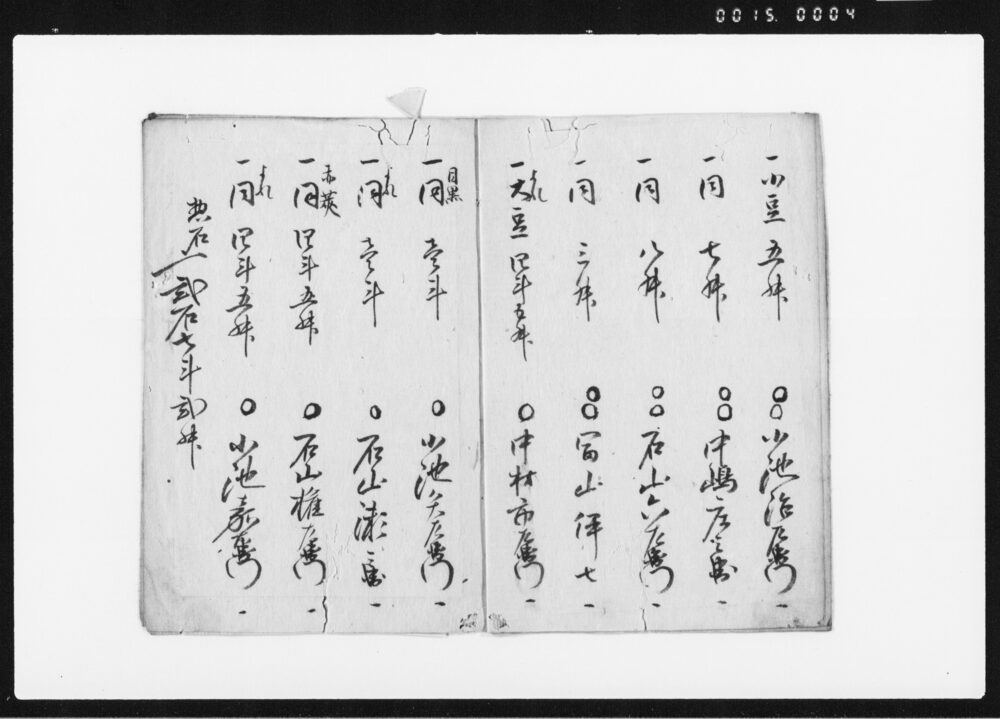 0015. 0004
一小豆 五升 〇〇 小池治左衛門
一同 七升 〇〇 中嶋庄之助
一同 八升 〇〇 石山六左衛門
一同 三升 〇〇 富山伴七
一大豆 四斗五升 〇 中村市左衛門
目黒
一同 壱斗 〇 小池矢左衛門
一同 壱斗 〇 石山瀬兵衛
赤莢
一同 四斗五升 〇 石山権左衛門
一同 四斗五升 〇 小池嘉左衛門
惣石〆弐石七斗弐升